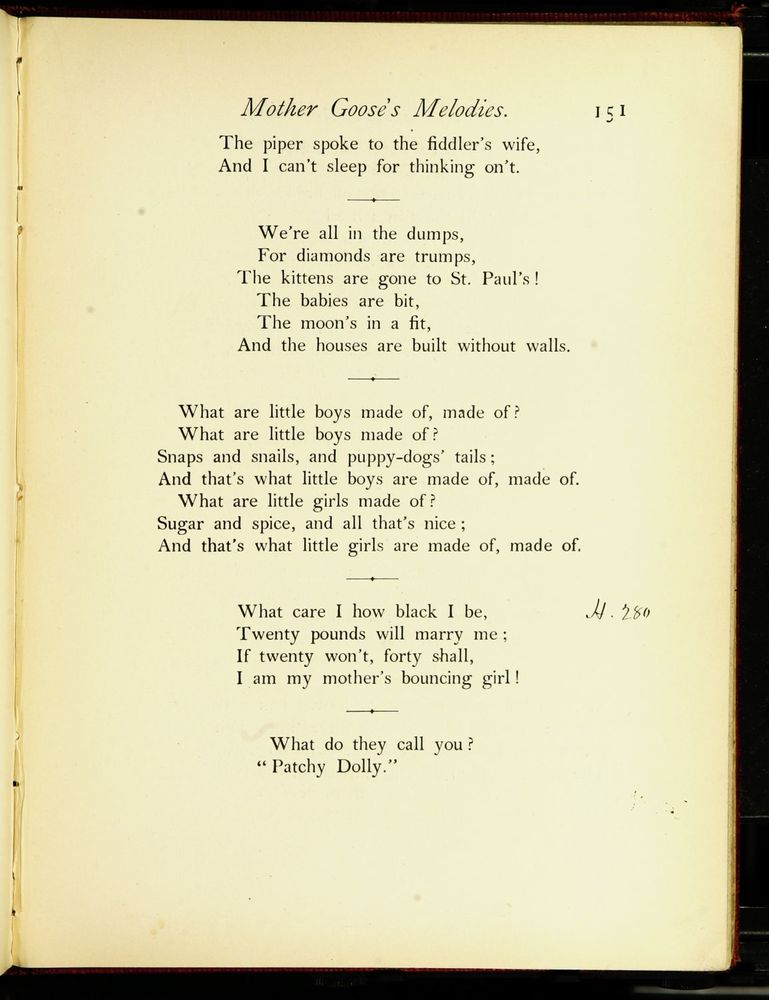 Mother Goose's Melodies. 151
The piper spoke to the fiddler's wife,
And I can't sleep for thinking on't.
We're all in the dumps,
For diamonds are trumps,
The kittens are gone to St. Paul's!
The babies are bit,
The moon's in a fit,
And the houses are built without walls.
What are little boys made of, made of?
What are little boys made of?
Snaps and snails, and puppy-dogs' tails;
And that's what little boys are made of, made of.
What are little girls made of?
Sugar and spice, and all that's nice;
And that's what little girls are made of, made of.
What care I how black I be, H. 280
Twenty pounds will marry me;
If twenty won't, forty shall,
I am my mother's bouncing girl!
What do they call you?
“Patchy Dolly.”